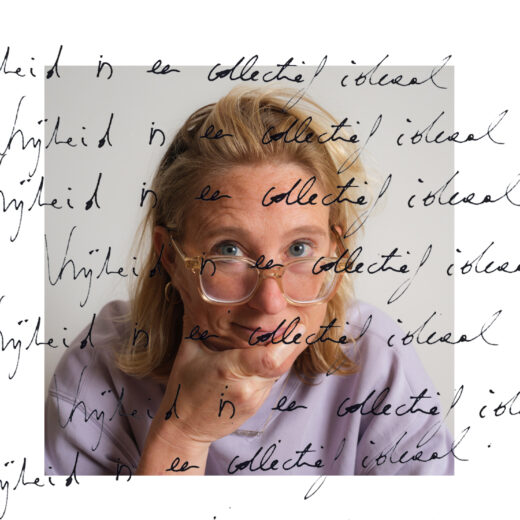 heid is een collectief ideaal
Vrijheid is een collectief ideaal
rijheid is een collectief ideaal
Vrijheid is een collectief ideaa
rijheid is een collectief ideaal
Vrijheid is een collectief ide
rijheid is een collectief ideaal.